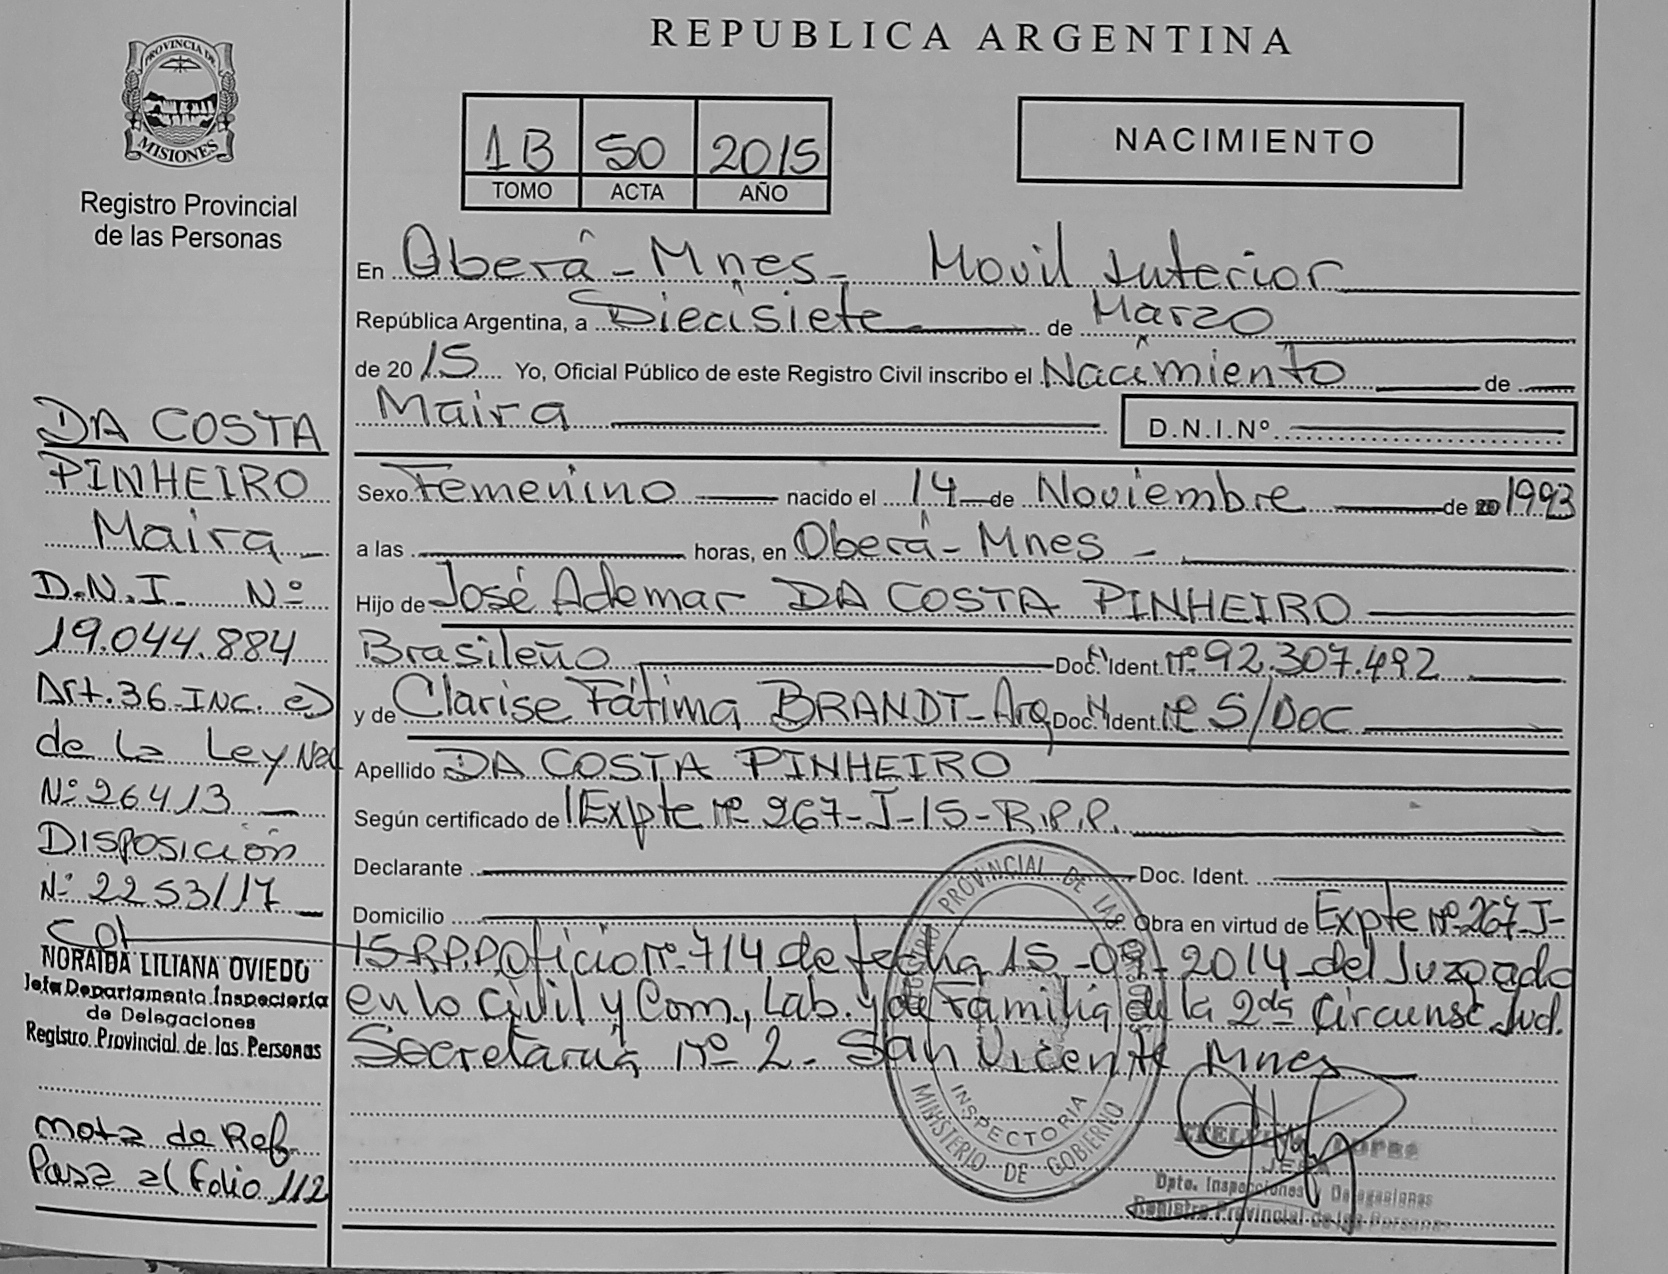 REPUBLICA ARGENTINA
PROVINCIA DE
MISIONES
Registro Provincial
de las Personas
1B 50 2015
TOMO ACTA AÑO
NACIMIENTO
En Oberá - Mnes - Movil Interior
República Argentina, a Diecisiete de Marzo
de 2015 Yo, Oficial Público de este Registro Civil inscribo el Nacimiento de
Maira D.N.I.Nº
Sexo Femenino nacido el 14 de Noviembre de 20 1993
a las horas, en Oberá - Mnes -
Hijo de José Ademar DA COSTA PINHEIRO
Brasileño Doc. Ident. Nº 92.307.492
y de Clarise Fátima BRANDT - Arg Doc. Ident. Nº S/DOC
Apellido DA COSTA PINHEIRO
Según certificado de Expte Nº 267-J-15-R.P.P.
Declarante Doc. Ident.
Domicilio Obra en virtud de Expte Nº 267 J-
15-R.P.P. Oficio Nº 714 de fecha 15-09-2014 del Juzgado
en lo Civil y Com., Lab. y de Familia de la 2da Circunsc. Jud.
Secretaria Nº 2 - San Vicente Mnes
DA COSTA
PINHEIRO
Maira
D.N.I. Nº
19.044.884
Art. 36 INC. e)
de la Ley Nac
Nº 26413
Disposición
Nº 2253/17
NORAIDA LILIANA OVIEDO
Jefa Departamento Inspectoria
de Delegaciones
Registro Provincial de las Personas
nota de Ref
Pasa al folio 112
PROVINCIAL DE LAS
INSPECTORIA
MINISTERIO DE GOBIERNO
JEFA
Dpto. Inspecciones y Delegaciones
Registro Provincial de las Personas